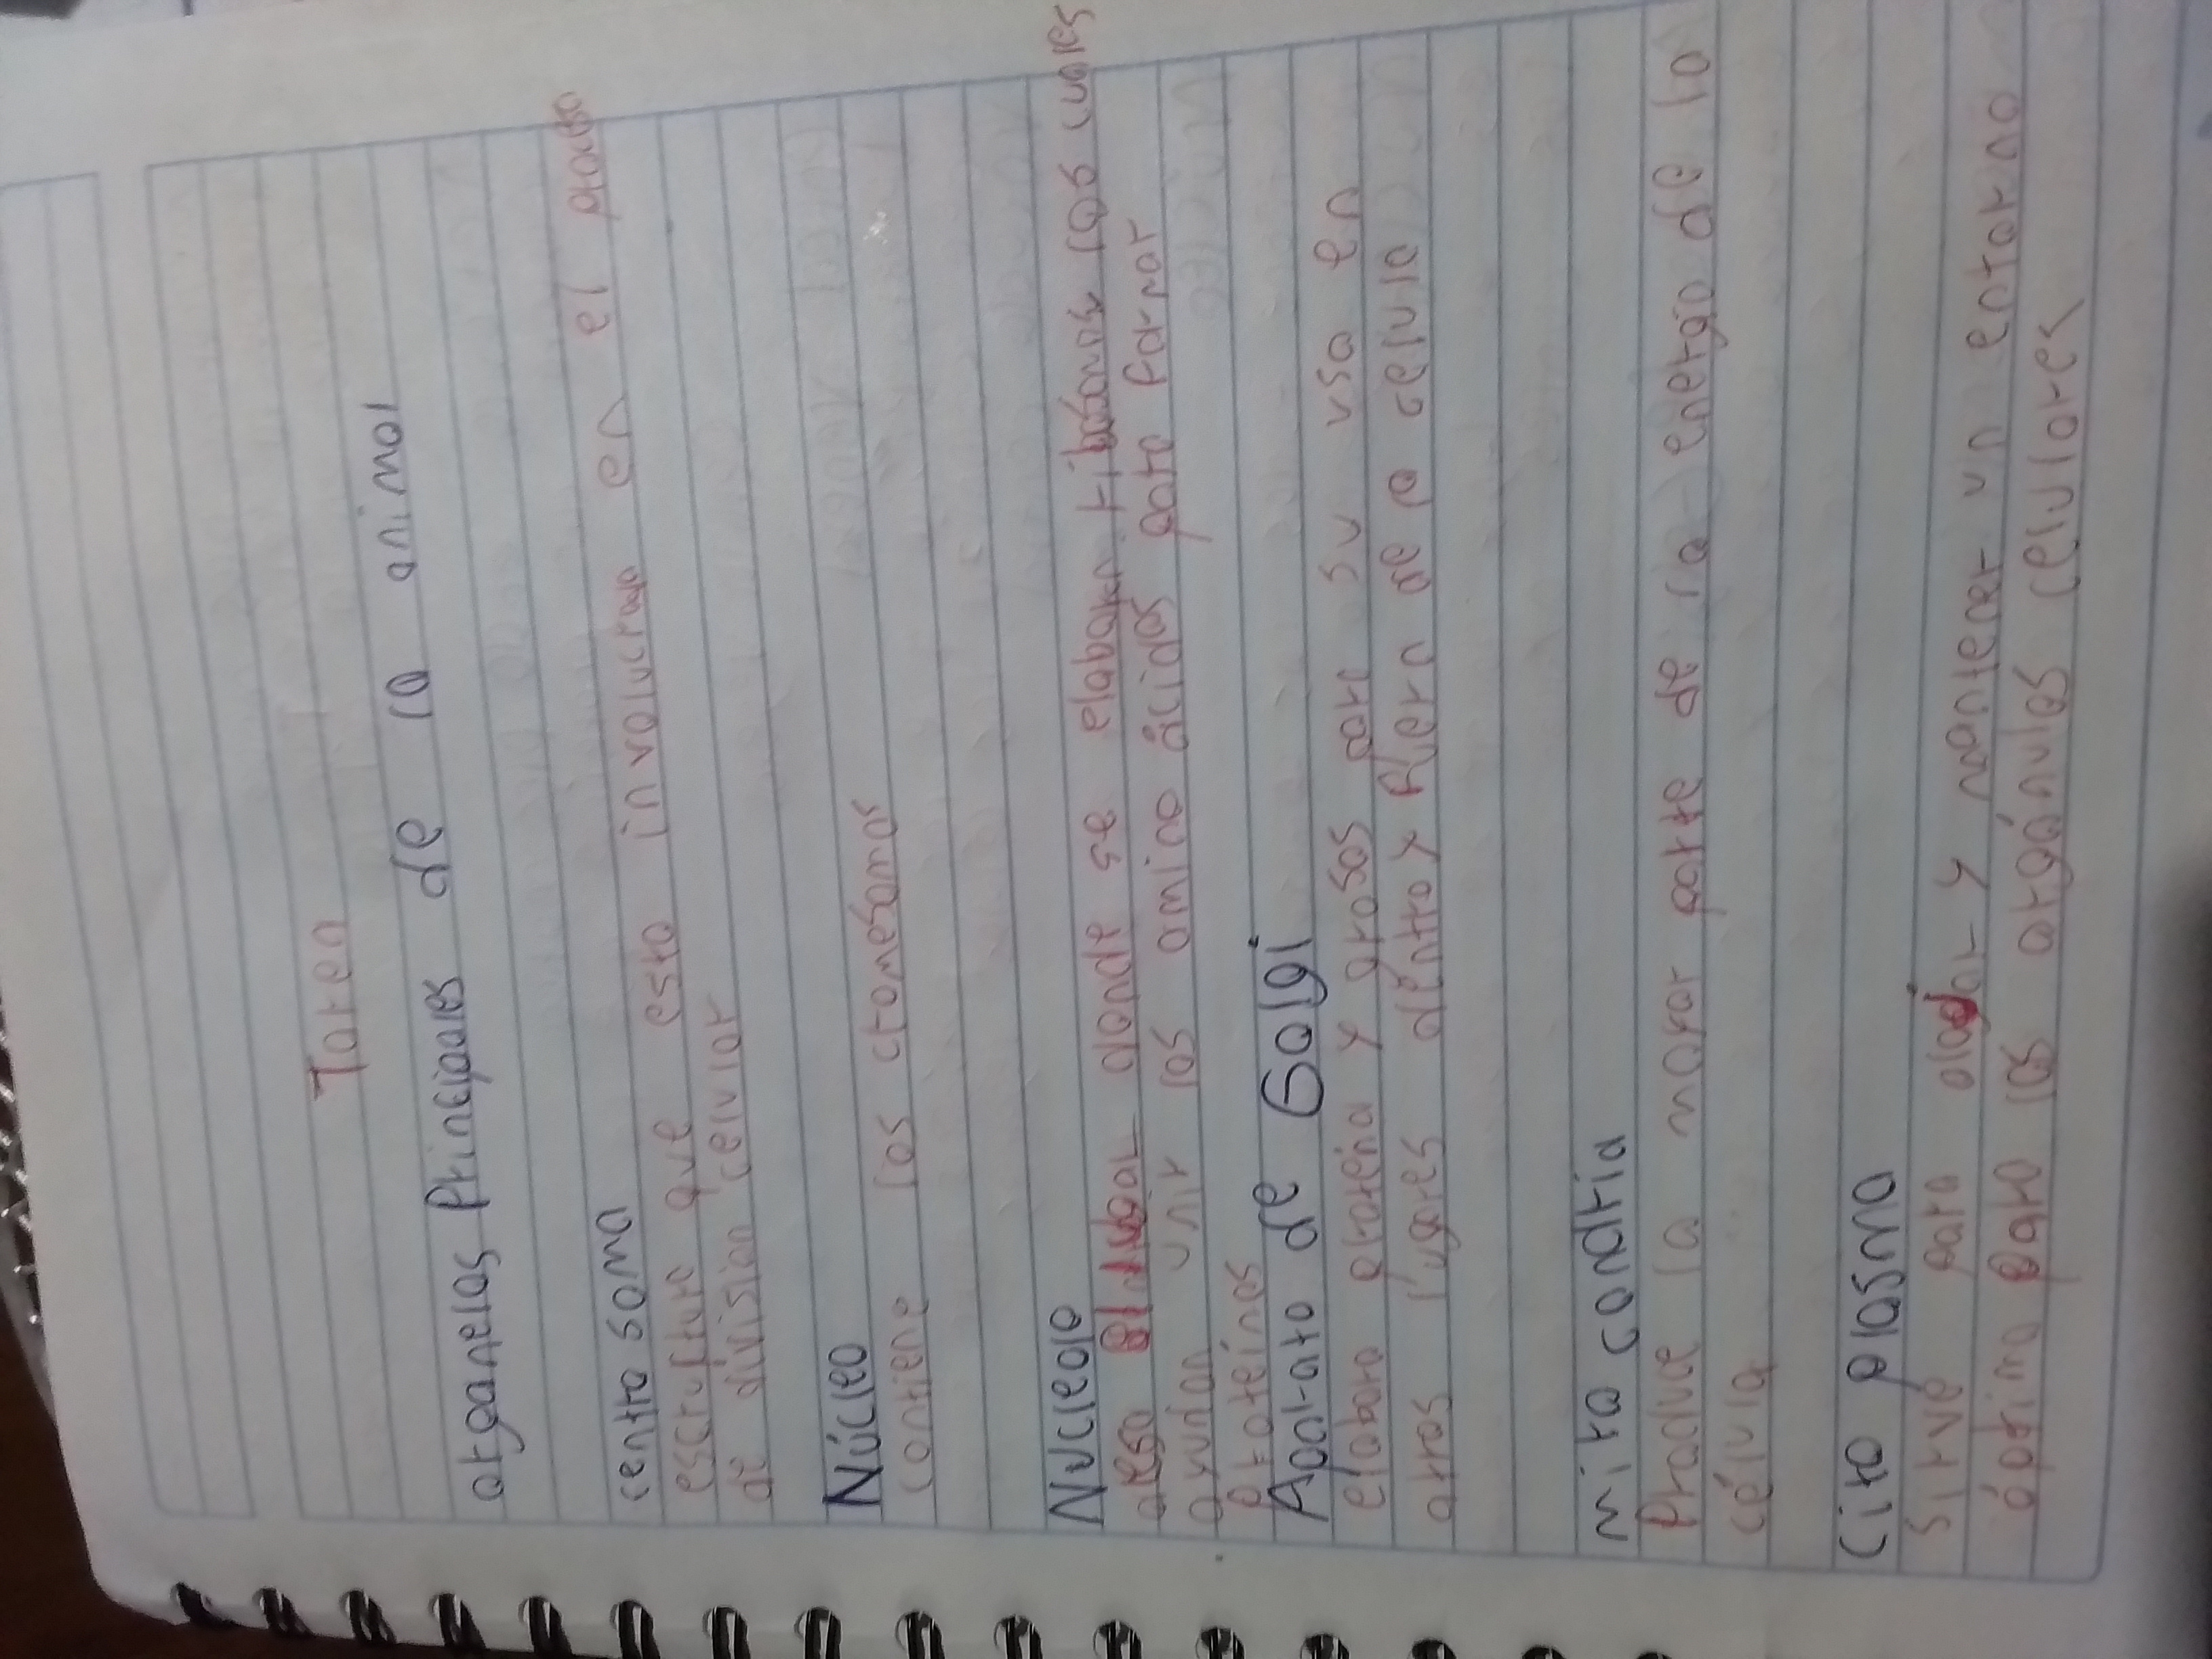 Tarea
organelos Principales de la animal
centro soma
escruftura que esta involucrado en el proceso
de division celular
Núcleo
contiene los cromosomas
Nucleolo
es el lugar donde se elaboran ribosomas los cuales
ayudan unir los amino ácidos para formar
proteinas
Aparato de Golgi
elabora almacena y grasas para su uso en
otros lugares dentro y fuera de a celula
mita condria
Produce la mayor parte de la energia de la
célula
Cito plasma
sirve para alojar y mantener un entorno
óptimo para los orgánulos celulares